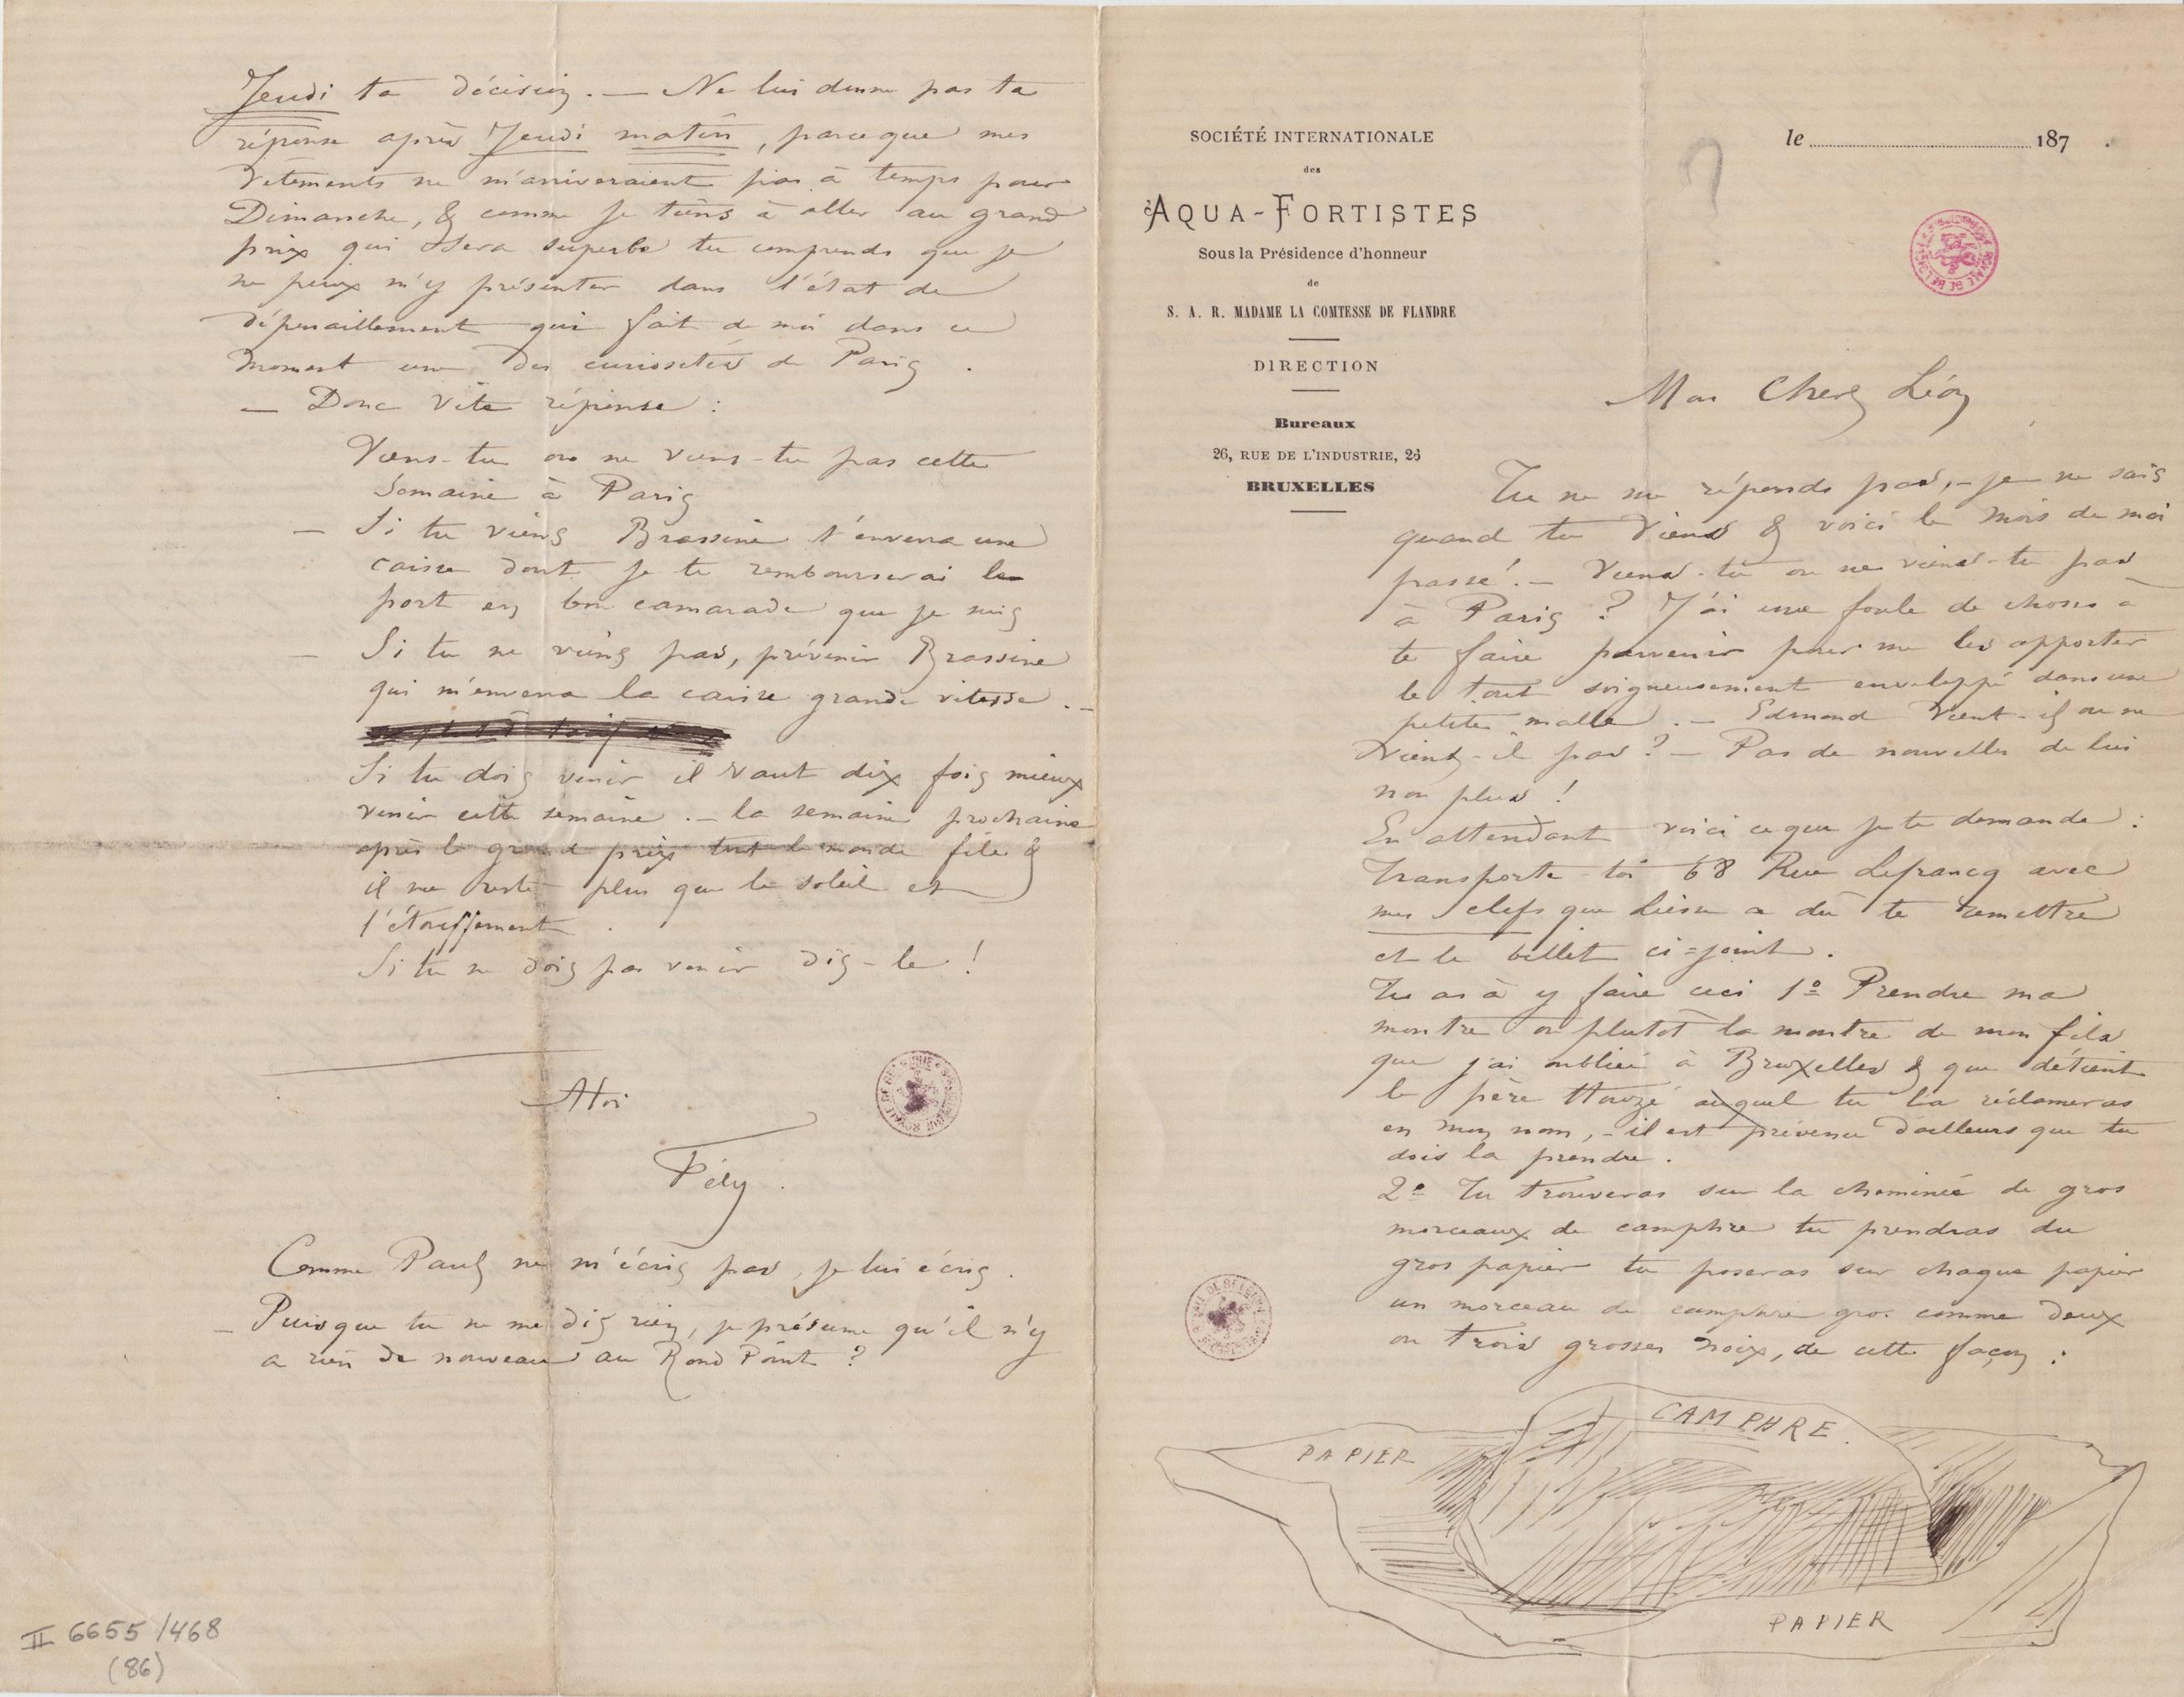 SOCIÉTÉ INTERNATIONALE
des
AQUA-FORTISTES
Sous la Présidence d'honneur
de
S. A. R. MADAME LA COMTESSE DE FLANDRE
DIRECTION
Bureaux
26, RUE DE L'INDUSTRIE, 26
BRUXELLES
le 187
Mon Cher Léon
Tu ne me réponds pas, - je ne sais
quand tu viens & voici le mois de mai
passé. - Viens-tu ou ne viens-tu pas
à Paris ? J'ai une foule de choses à
te faire parvenir pour me les apporter
le tout soigneusement enveloppé dans une
petite malle. - Edmond vient-il ou ne
vient-il pas ? - Pas de nouvelles de lui
non plus !
En attendant voici ce que je te demande :
Transporte-toi 68 Rue Lefrancq avec
mes clefs que Liesse a dû te remettre
et le billet ci=joint.
Tu as à y faire ceci 1º Prendre ma
montre ou plutôt la montre de mon fils
que j'ai oubliée à Bruxelles & que détient
le père Houzé auquel tu la réclameras
en mon nom, - il est prévenu d'ailleurs que tu
dois la prendre.
2º Tu trouveras sur la cheminée de gros
morceaux de camphre tu prendras du
gros papier tu poseras sur chaque papier
un morceau de camphre gros comme deux
ou trois grosses noix, de cette façon :
PAPIER
CAMPHRE.
PAPIER
Jeudi ta décision. - Ne lui donne pas ta
réponse après Jeudi matin, parceque mes
vêtements ne m'arriveraient pas à temps pour
Dimanche, & comme je tiens à aller au grand
prix qui sera superbe tu comprends que je
ne peux m'y présenter dans l'état de
dépenaillement qui fait de moi dans ce
moment une des curiosités de Paris.
- Donc vite réponse :
Viens-tu ou ne viens-tu pas cette
semaine à Paris
- Si tu viens Brassine t'enverra une
caisse dont je te rembourserai le
port en bon camarade que je suis
- Si tu ne viens pas, prévenir Brassine
qui m'enverra la caisse grande vitesse. -
Si tu dois venir il vaut dix fois mieux
venir cette semaine. - la semaine prochaine
après le grand prix tout le monde file &
il ne reste plus que le soleil et
l'étouffement.
Si tu ne dois pas venir dis-le !
A toi
Fély.
Comme Paul ne m'écris pas, je lui écris.
- Puisque tu ne me dis rien, je présume qu'il n'y
a rien de nouveau au Rond Point ?
II 6655/468
(86)